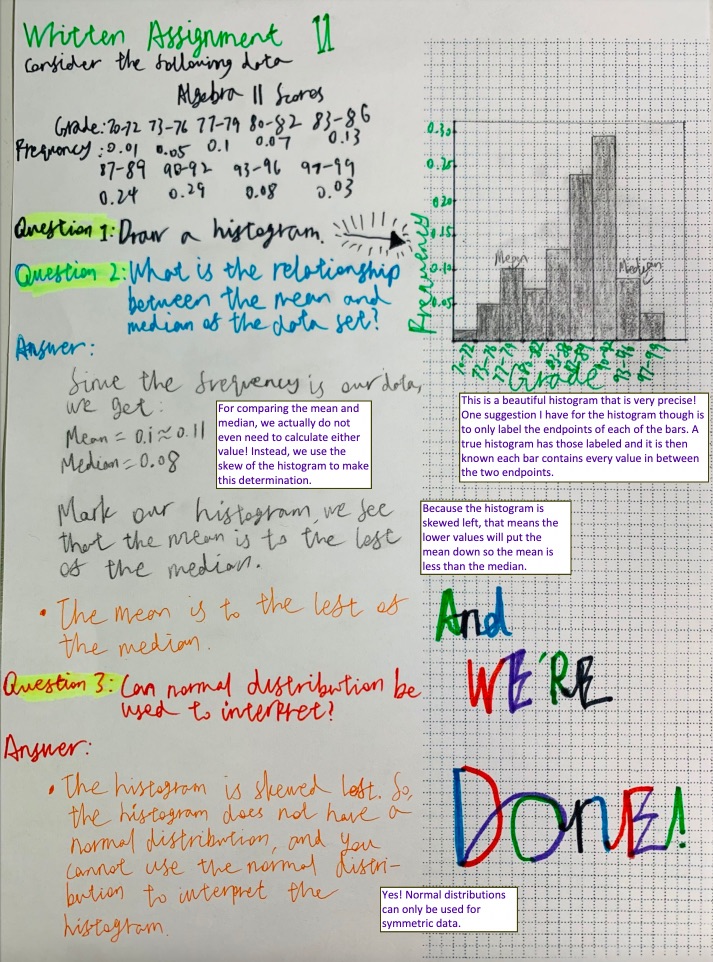 Written Assignment 11
Consider the following data
Algebra II Scores
Grade: 70-72 73-76 77-79 80-82 83-86
Frequency: 0.01 0.05 0.1 0.07 0.13
87-89 90-92 93-96 97-99
0.24 0.29 0.08 0.03
Question 1: Draw a histogram.
Question 2: What is the relationship
between the mean and
median of the data set?
Answer:
Since the frequency is our data,
we get:
Mean = 0.1̇ ≈ 0.11
Median = 0.08
For comparing the mean and
median, we actually do not
even need to calculate either
value! Instead, we use the
skew of the histogram to make
this determination.
Mark our histogram, we see
that the mean is to the left
of the median.
• The mean is to the left of
the median.
Question 3: Can normal distribution be
used to interpret?
Answer:
• The histogram is skewed left. So,
the histogram does not have a
normal distribution, and you
cannot use the normal distri-
bution to interpret the
histogram.
Frequency
0.30
0.25
0.20
0.15
0.10
0.05
Mean
Median
70-72
73-76
77-79
80-82
83-86
87-89
90-92
93-96
97-99
Grade
This is a beautiful histogram that is very precise!
One suggestion I have for the histogram though is
to only label the endpoints of each of the bars. A
true histogram has those labeled and it is then
known each bar contains every value in between
the two endpoints.
Because the histogram is
skewed left, that means the
lower values will put the
mean down so the mean is
less than the median.
And
WE'RE
DONE!
Yes! Normal distributions
can only be used for
symmetric data.